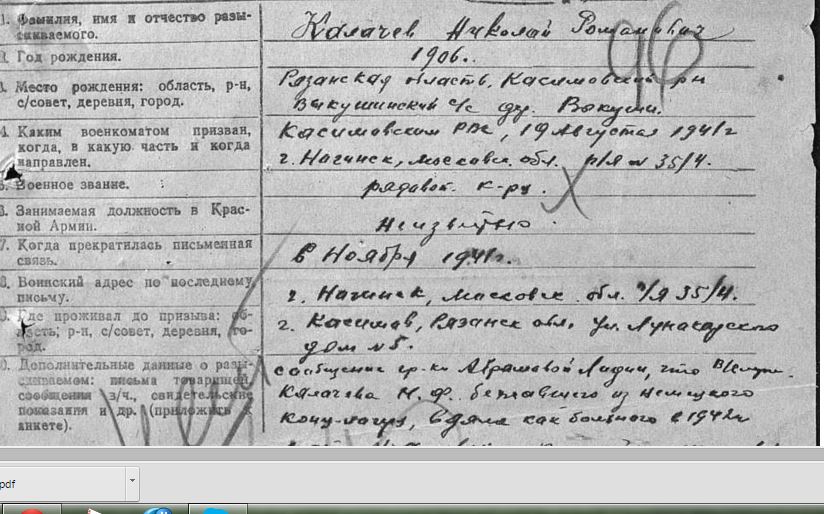 1. Фамилия, имя и отчество разы-
скиваемого.
Калачев Николай Романович
2. Год рождения.
1906.
3. Место рождения: область, р-н,
с/совет, деревня, город.
Рязанская область, Касимовский р-н
Вакушинский с/с
4. Каким военкоматом призван,
когда, в какую часть и когда
направлен.
Касимовским РВК, 19 Августа 1941 г
г. Нагинск, московск. обл. п/я № 35/4.
5. Военное звание.
рядавой
6. Занимаемая должность в Крас-
ной Армии.
Неизвестно
7. Когда прекратилась письменная
связь.
в Ноября 1941 г.
8. Воинский адрес по последнему
письму.
г. Нагинск, московск. обл. п/я 35/4.
9. Где проживал до призыва: об-
ласть, р-н, с/совет, деревня, го-
род.
г. Касимав, Рязанск обл, ул. Луначарского
дом № 5.
0. Дополнительные данные о разы-
скиваемом: письма товарищей,
сообщения з/ч., свидетельские
показания и др. (приложить к
анкете).
сообщение гр-ки Абрамовой Лидии, что
Калачева Н. Ф. бежавшего из немецкого
как больного в 1942 г
96
pdf